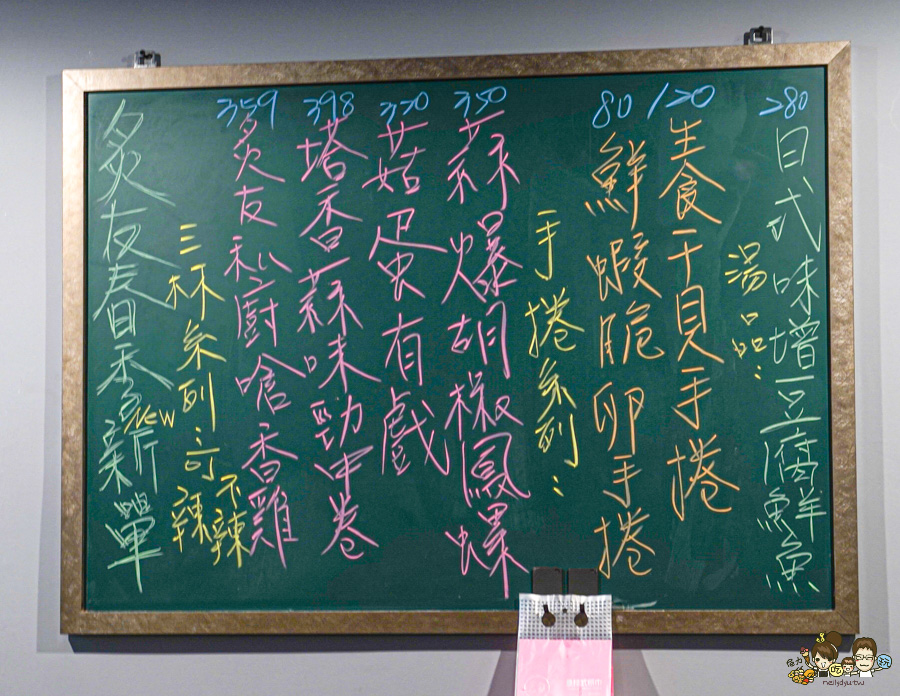 炙友春季新單
NEW
三杯系列:可辣不辣
359
炙友私廚嗆香雞
398
塔香蒜味勁中卷
320
菇蛋有戲
350
蒜爆胡椒鳳螺
手捲系列:
80
鮮蝦脆卵手捲
120
生食干貝手捲
湯品:
280
日式味增豆腐鮮魚
吃
玩
neilydyu.tw